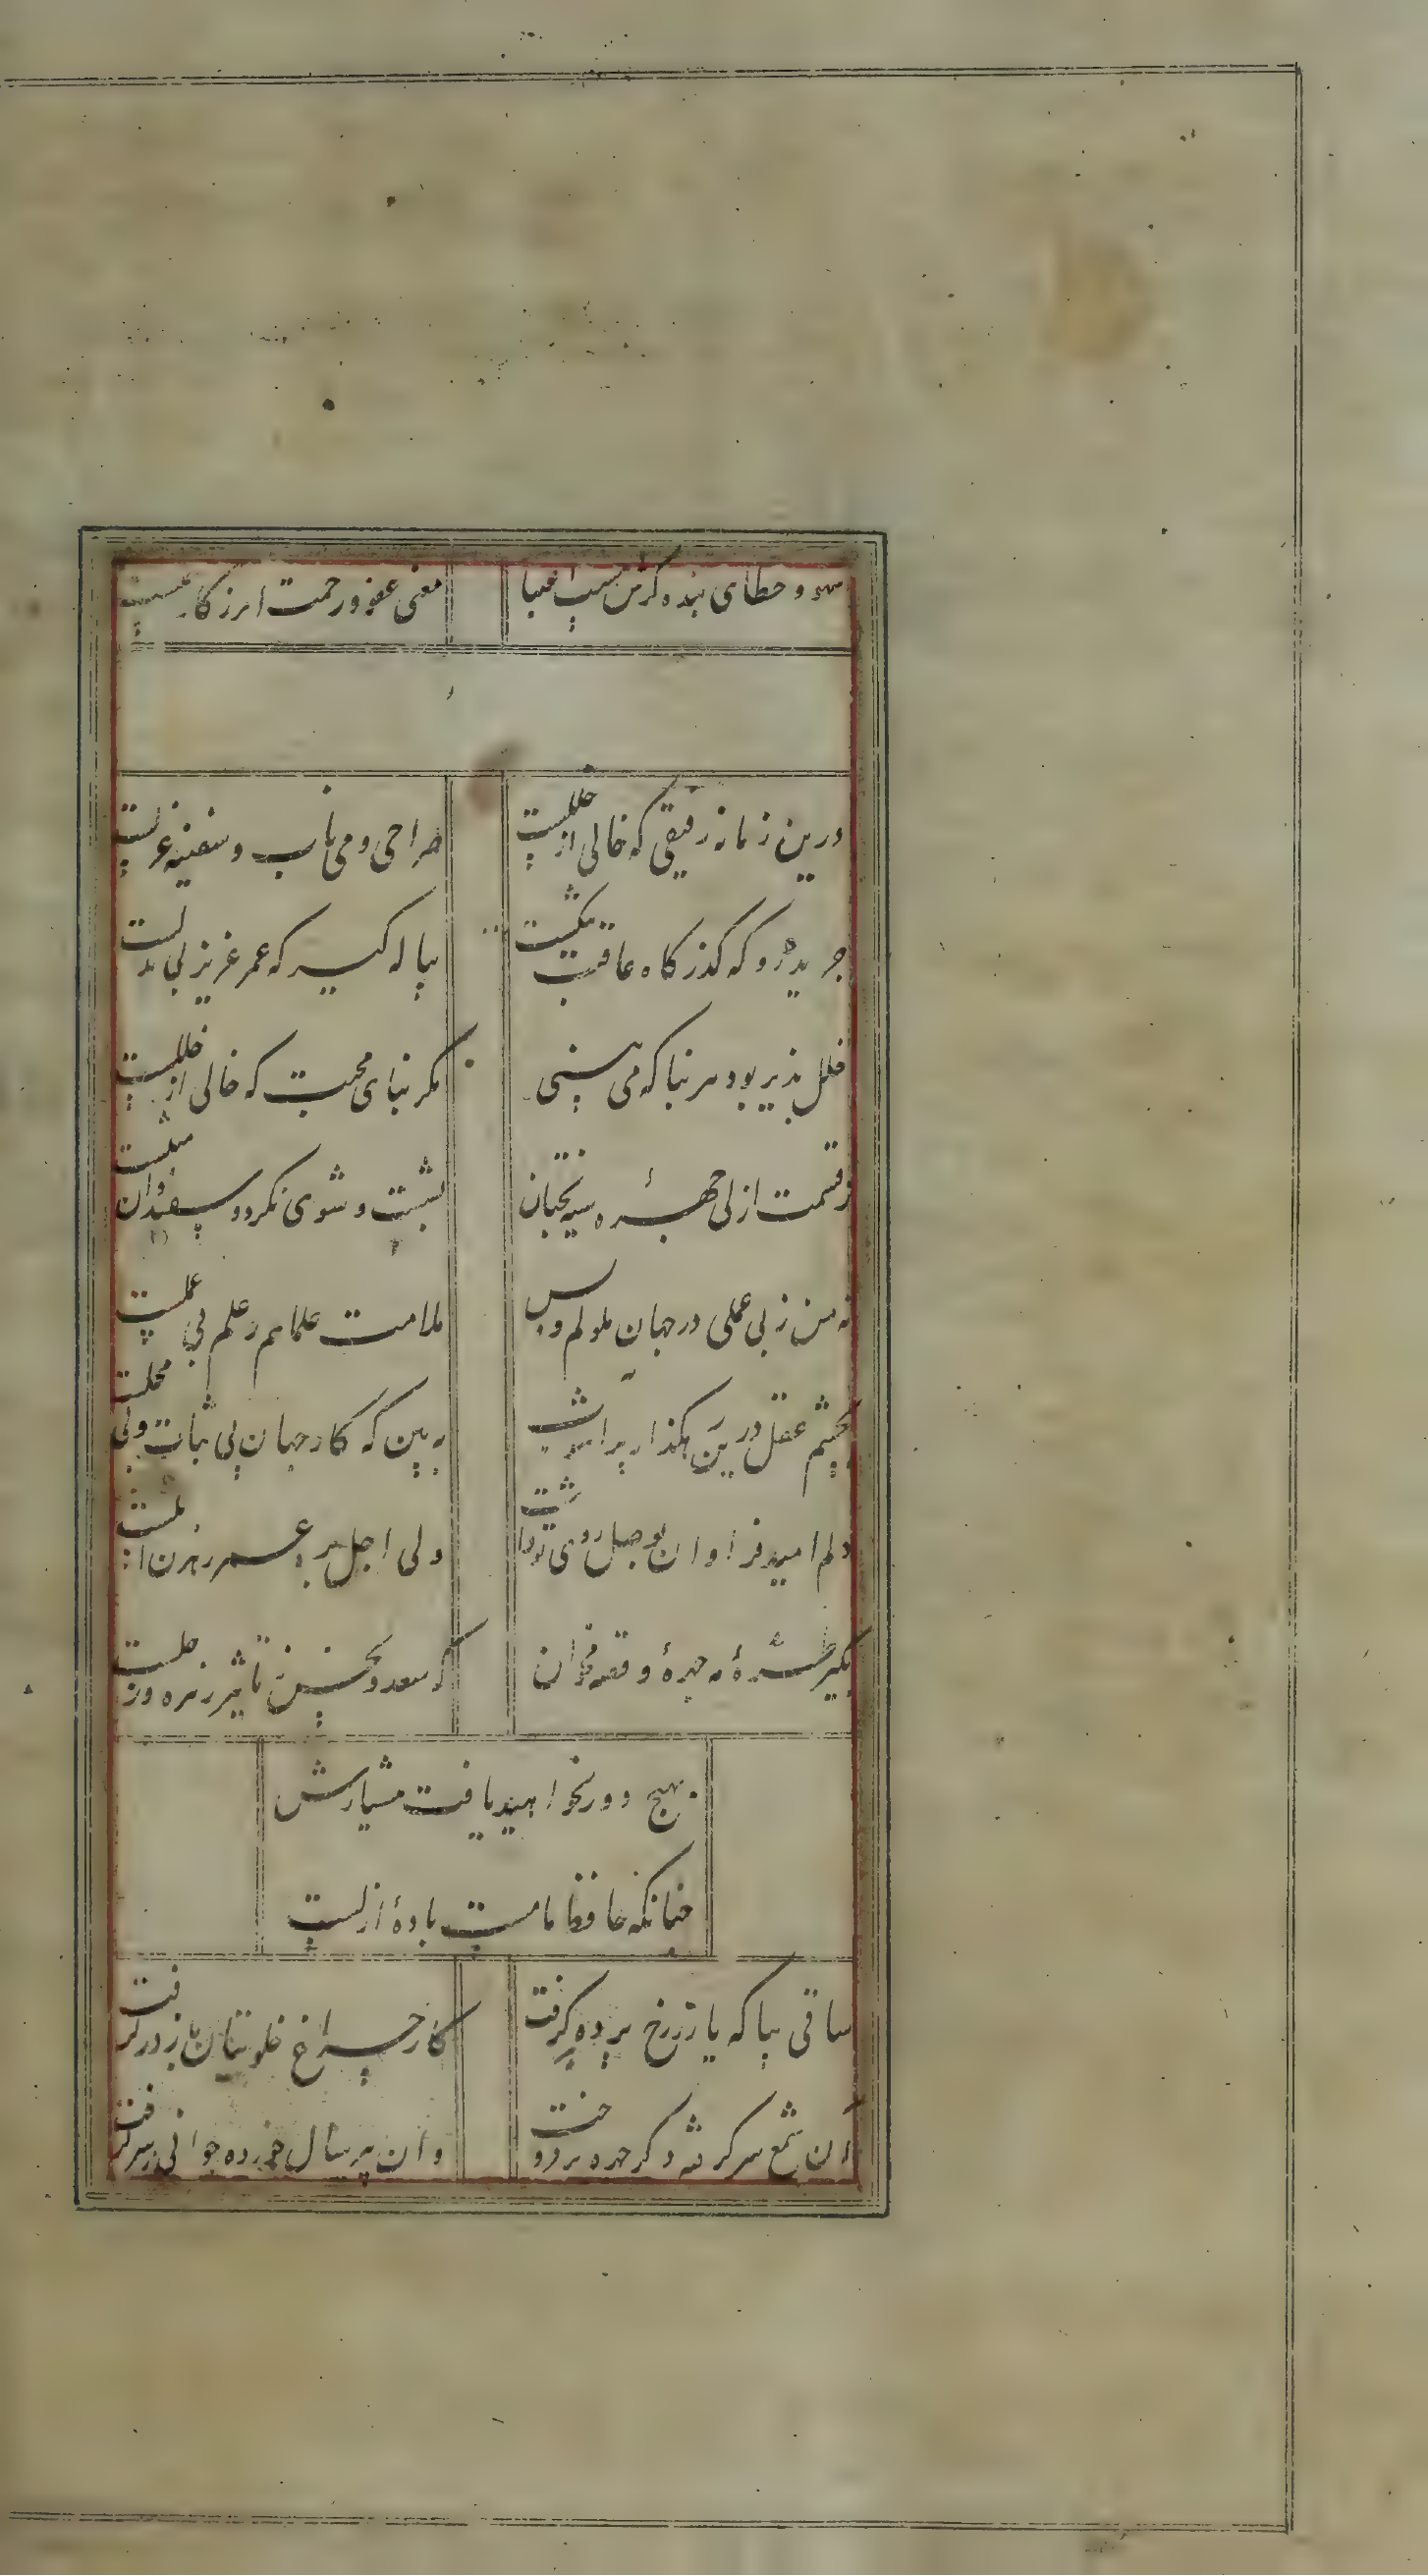 سهو و خطای بنده گرش نیست اعتبار
معنی عفو و رحمت امرزکار چیست
درین زمانه رفیقی که خالی از خللست
صراحی و می ناب و سفینه غزلست
جریده رو که گذرگاه عافیت تنگست
پیاله گیر که عمر عزیز بی بدلست
خلل پذیر بود هر بنا که می بینی
مگر بنای محبت که خالی از خللست
ز قسمت ازلی چهرهٔ سیه بختان
بشست و شوی نگردد سفید و آن مثلست
نه من ز بی عملی در جهان ملولم و بس
ملامت علما هم ز علم بی عملست
بچشم عقل درین رهگذار پرآشوب
ببین که کار جهان بی ثبات و بی محلست
دلم امید فراوان بوصل روی تو داشت
ولی اجل بره عمر رهزن املست
بگیر طرهٔ مه چهرهٔ و قصه مخوان
که سعد و نحس ز تاثیر زهره و زحلست
بهیچ دور نخواهید یافت هشیارش
چنانکه حافظ ما مست بادهٔ ازلست
ساقی بیا که یار ز رخ پرده برگرفت
کار چراغ خلوتیان باز درگرفت
آن شمع سرگرفته دگر چهره برفروخت
و آن پیر سال خورده جوانی ز سر گرفت